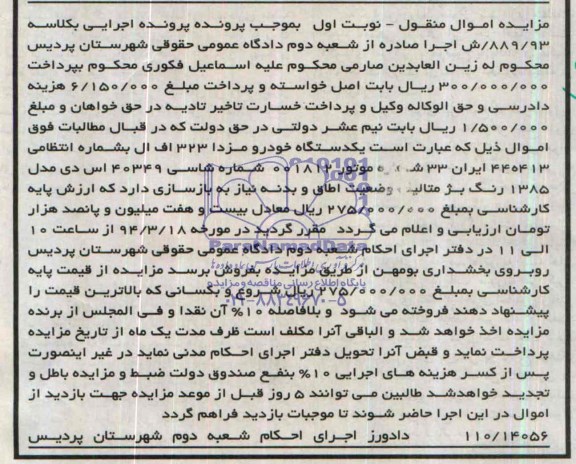 مزایده اموال منقول - نوبت اول بموجب پرونده پرونده اجرایی بکلاسه
۸۸۹/۹۳/ش اجرا صادره از شعبه دوم دادگاه عمومی حقوقی شهرستان پردیس
محکوم له زین العابدین صارمی محکوم علیه اسماعیل فکوری محکوم بپرداخت
۳۰۰/۰۰۰/۰۰۰ ریال بابت اصل خواسته و پرداخت مبلغ ۶/۱۵۰/۰۰۰ هزینه
دادرسی و حق الوکاله وکیل و پرداخت خسارت تاخیر تادیه در حق خواهان و مبلغ
۱/۵۰۰/۰۰۰ ریال بابت نیم عشر دولتی در حق دولت که در قبال مطالبات فوق
اموال ذیل که عبارت است یکدستگاه خودرو مزدا ۳۲۳ اف ال بشماره انتظامی
ایران ۳۳ موتور شماره شاسی ۴۰۳۴۹ اس دی مدل
۱۳۸۵ رنگ بژ وضعیت اطاق و بدنه نیاز به بازسازی دارد که ارزش پایه
کارشناسی بمبلغ ۲۷۵/۰۰۰/۰۰۰ ریال معادل بیست و هفت میلیون و پانصد هزار
تومان ارزیابی و اعلام می گردد مقرر گردید در مورخه ۹۴/۳/۱۸ از ساعت ۱۰
الی ۱۱ در دفتر اجرای احکام شعبه دوم دادگاه عمومی حقوقی شهرستان پردیس
روبروی بخشداری بومهن از طریق مزایده بفروش برسد مزایده از قیمت پایه
کارشناسی بمبلغ ۲۷۵/۰۰۰/۰۰۰ ریال شروع و بکسانی که بالاترین قیمت را
پیشنهاد دهند فروخته می شود و بلافاصله ۱۰% آن نقدا و فی المجلس از برنده
مزایده اخذ خواهد شد و الباقی آنرا مکلف است ظرف مدت یک ماه از تاریخ مزایده
پرداخت نماید و قبض آنرا تحویل دفتر اجرای احکام مدنی نماید در غیر اینصورت
پس از کسر هزینه های اجرایی ۱۰% بنفع صندوق دولت ضبط و مزایده باطل و
تجدید خواهدشد طالبین می توانند ۵ روز قبل از موعد مزایده جهت بازدید از
اموال در این اجرا حاضر شوند تا موجبات بازدید فراهم گردد
۱۱۰/۱۴۰۵۶ دادورز اجرای احکام شعبه دوم شهرستان پردیس
ParsNamadData
پایگاه اطلاع رسانی مناقصه و مزایده
۰۲۱-۸۸۳۴۹۶۷۰-۵